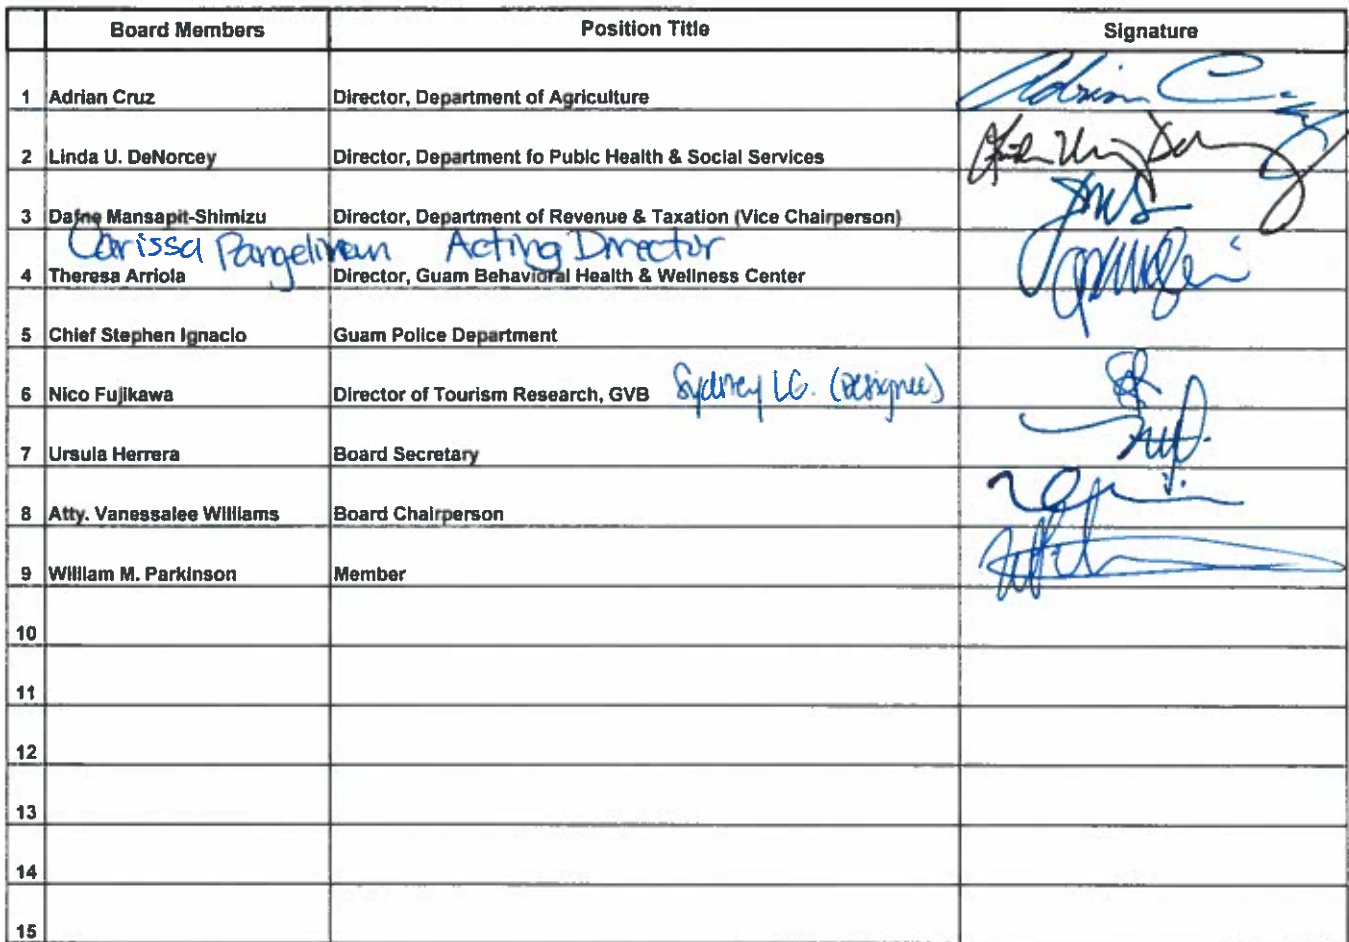 Board Members Position Title Signature
1 Adrian Cruz Director, Department of Agriculture Adrian C
2 Linda U. DeNorcey Director, Department fo Publc Health & Social Services
3 Dafne Mansapit-Shimizu Director, Department of Revenue & Taxation (Vice Chairperson)
Carissa Pangelinan Acting Director
4 Theresa Arriola Director, Guam Behavioral Health & Wellness Center
5 Chief Stephen Ignacio Guam Police Department
6 Nico Fujikawa Director of Tourism Research, GVB Sydney LG. (Designee)
7 Ursula Herrera Board Secretary
8 Atty. Vanessalee Williams Board Chairperson
9 William M. Parkinson Member
10
11
12
13
14
15